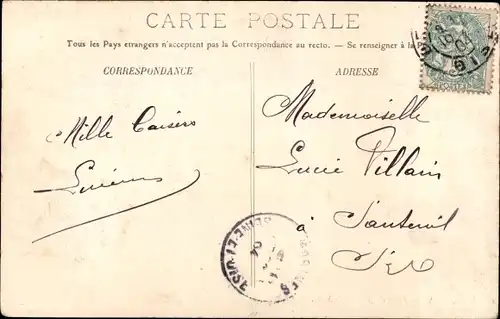 CARTE POSTALE
Tous les Pays étrangers n'acceptent pas la Correspondance au recto. — Se renseigner à la
CORRESPONDANCE
ADRESSE
Mille Baisers
Mademoiselle
Lucie Villain
à Santeuil
SEINE-ET-OISE